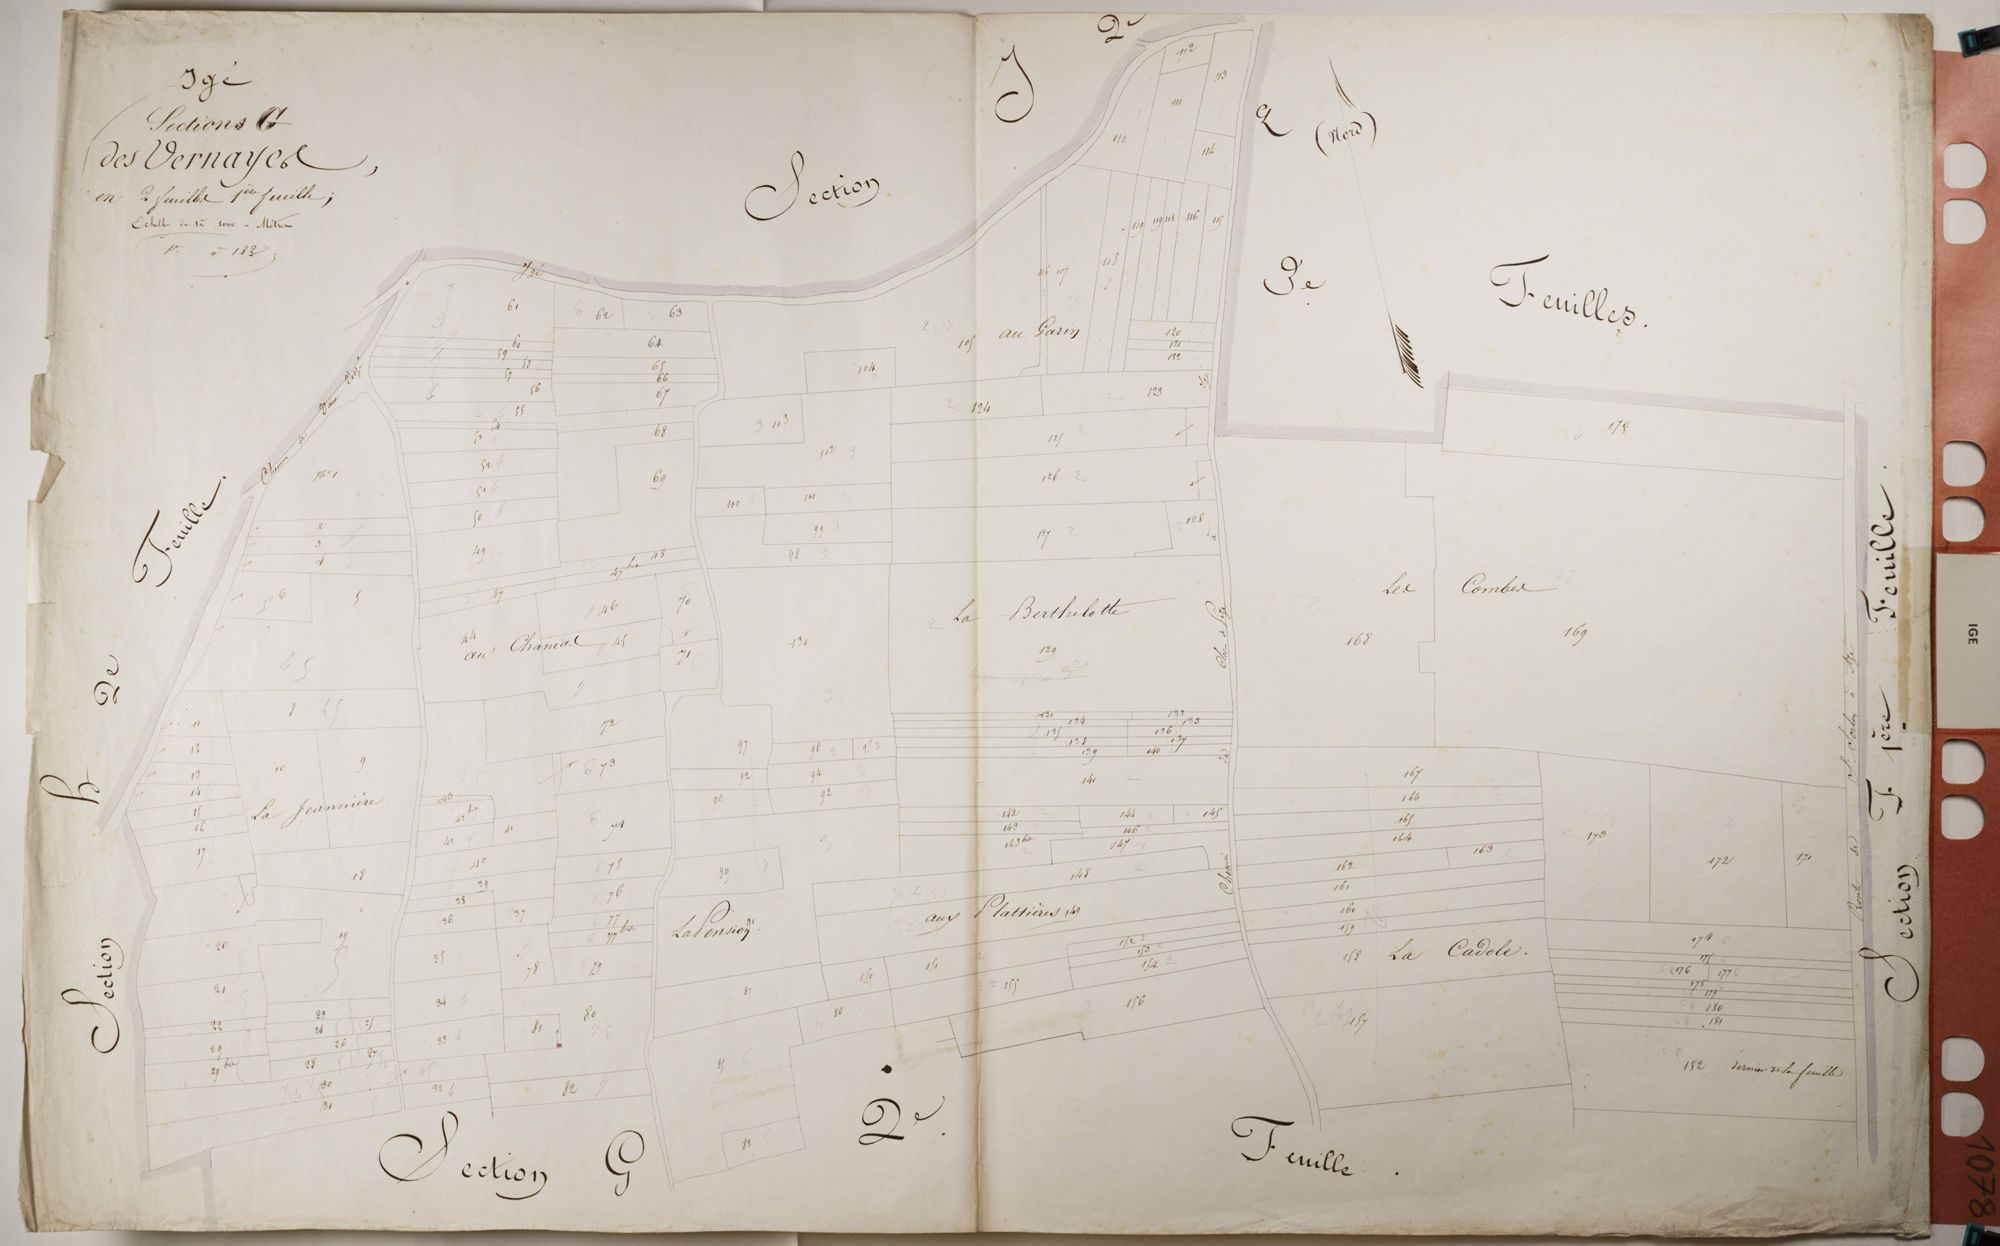 Igé
Sections G
des Vernayes,
en 2 feuilles 1ère feuille;
Echelle de 1 à 2000 Mètres
Section J 2e
2
3e Feuilles.
(Nord)
Section h 2e Feuille.
Chemin
Igé
au Garin
au Chanial
La Jeannière
La Berthelotte
Les Combes
La Pension
aux Plattières
La Cadole.
Chemin
Section F 1ère Feuille.
Section G 2e. Feuille.
182 dernier de la feuille
N° 1
2
3
4
5
6
8
9
10
11
12
13
14
15
16
17
18
19
20
21
22
23
24
25
26
27
28
29
29 bis
30
31
32
33
34
35
36
37
38
39
40
41
43
44
45
46
47
47 bis
48
49
50
51
52
53
54
55
56
57
58
59
60
61
62
63
64
65
66
67
68
69
70
71
72
73
74
75
76
77
77 bis
78
79
80
81
82
83
85
87
89
90
92
94
97
98
99
100
101
102
103
104
105
107
108
110
111
112
113
114
115
116
120
121
122
123
124
125
126
127
128
129
130
131
132
133
134
135
136
137
138
139
140
141
142
143
143 bis
144
145
146
147
148
150
151
152
153
154
155
156
157
158
159
160
161
162
163
164
165
166
167
168
169
171
172
173
174
176
177
178
180
181
IGE
1078